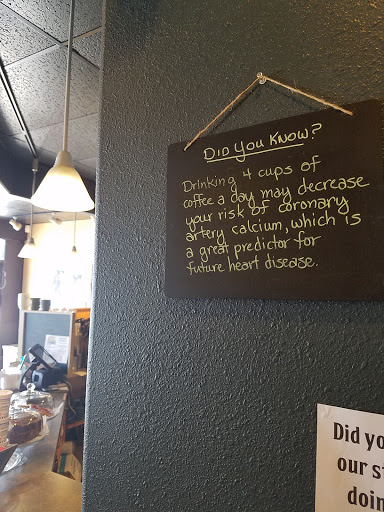 Did You Know?
Drinking 4 cups of
coffee a day may decrease
your risk of coronary
artery calcium, which is
a great predictor for
future heart disease.
Did yo
our st
doin